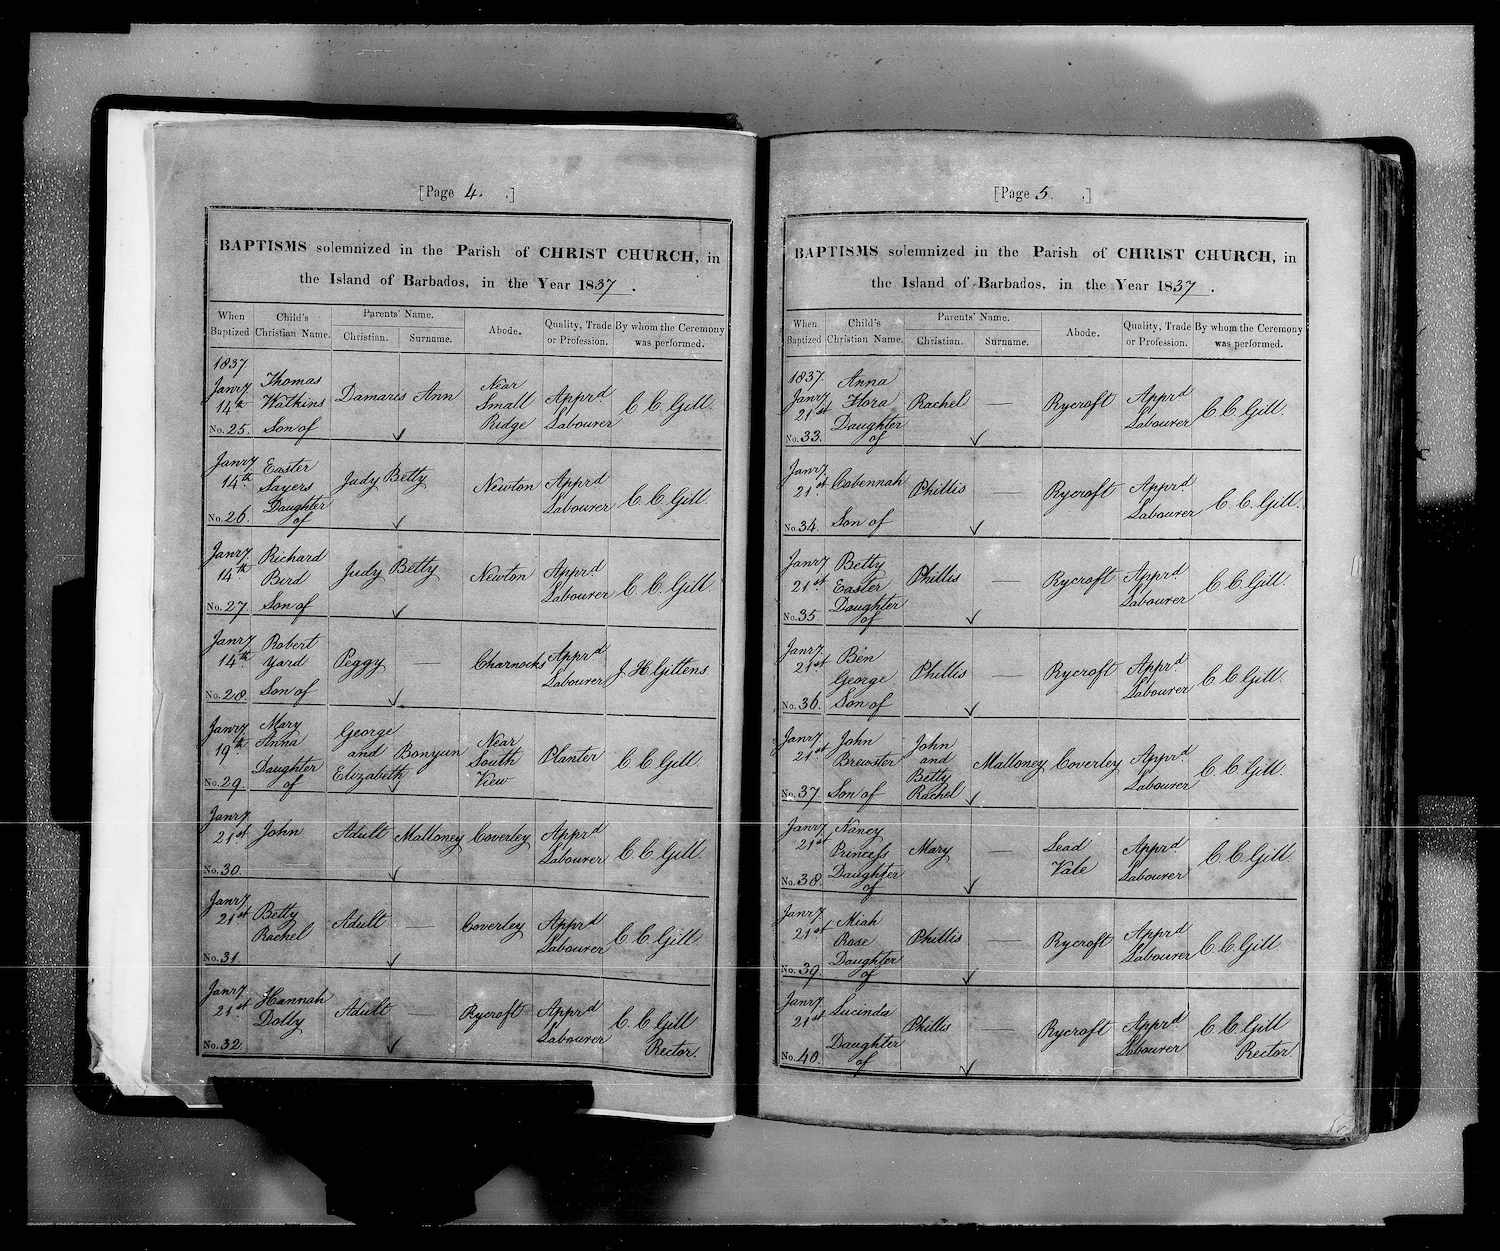 [Page 4. .]
BAPTISMS solemnized in the Parish of CHRIST CHURCH, in
the Island of Barbados, in the Year 1837 .
When Baptized
Child's Christian Name.
Parents' Name.
Christian.
Surname.
Abode.
Quality, Trade or Profession.
By whom the Ceremony was performed.
1837
Janry 14th No. 25.
Thomas Watkins Son of
Damaris Ann
Near Small Ridge
Apprd Labourer
C C Gill.
Janry 14th No. 26.
Easter Sayers Daughter of
Judy Betty
Newton
Apprd Labourer
C. C. Gill.
Janry 14th No. 27.
Richard Bird Son of
Judy Betty
Newton
Apprd Labourer
C. C. Gill.
Janry 14th No. 28.
Robert Yard Son of
Peggy
—
Charnocks
Apprd Labourer
J H Gittens
Janry 19th No. 29
Mary Anna Daughter of
George and Elizabeth
Bonyun
Near South View
Planter
C C Gill.
Janry 21st No. 30.
John
Adult
Malloney
Coverley
Apprd Labourer
C C Gill.
Janry 21st No. 31
Betty Rachel
Adult
—
Coverley
Apprd Labourer
C C Gill.
Janry 21st No. 32
Hannah Dolly
Adult
—
Rycroft
Apprd Labourer
C. C Gill Rector.
[Page 5. .]
BAPTISMS solemnized in the Parish of CHRIST CHURCH, in
the Island of Barbados, in the Year 1837 .
When Baptized
Child's Christian Name.
Parents' Name.
Christian.
Surname.
Abode.
Quality, Trade or Profession.
By whom the Ceremony was performed.
1837.
Janry 21st No. 33.
Anna Flora Daughter of
Rachel
—
Rycroft
Apprd Labourer
C C Gill.
Janry 21st No. 34.
Cobennah Son of
Phillis
—
Rycroft
Apprd Labourer
C. C. Gill.
Janry 21st No. 35
Betty Easter Daughter of
Phillis
—
Rycroft
Apprd Labourer
C. C Gill.
Janry 21st No. 36.
Ben George Son of
Phillis
—
Rycroft
Apprd Labourer
C. C Gill.
Janry 21st No. 37
John Brewster Son of
John and Betty Rachel
Malloney
Coverley
Apprd Labourer
C. C Gill.
Janry 21st No. 38.
Nancy Princess Daughter of
Mary
—
Lead Vale
Apprd Labourer
C. C Gill.
Janry 21st No. 39
Miah Rose Daughter of
Phillis
—
Rycroft
Apprd Labourer
C C Gill
Janry 21st No. 40.
Lucinda Daughter of
Phillis
—
Rycroft
Apprd Labourer
C. C Gill Rector.